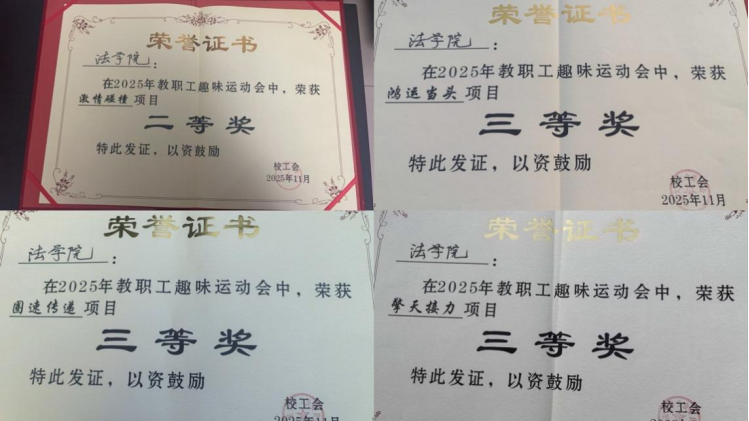 荣誉证书
法学院：
在2025年教职工趣味运动会中，荣获
激情碰撞项目
二等奖
特此发证，以资鼓励
校工会
2025年11月
荣誉证书
法学院：
在2025年教职工趣味运动会中，荣获
鸿运当头项目
三等奖
特此发证，以资鼓励
校工会
2025年11月
荣誉证书
法学院：
在2025年教职工趣味运动会中，荣获
圈速传递项目
三等奖
特此发证，以资鼓励
校工会
2025年11月
荣誉证书
法学院：
在2025年教职工趣味运动会中，荣获
擎天接力项目
三等奖
特此发证，以资鼓励
校工会